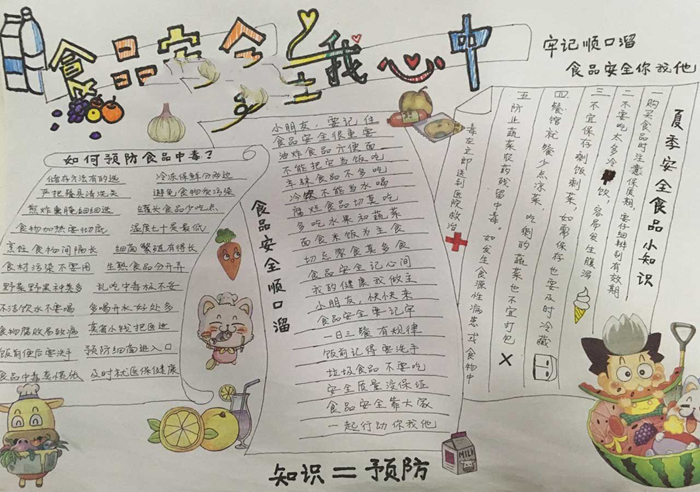 食品安全在我心中
牢记顺口溜
食品安全你我他
如何预防食品中毒？
储存方法有的选 冷冻保鲜分两边
严把餐具清洗关 避免食物被污染
煎炸熏腌细细选
食物加热要彻底
烹饪食物间隔长 细菌繁殖有得长
食材污染不要用 生熟食品分开弄
野菜野果种类多 乱吃中毒栽不妥
不洁饮水不要喝 多喝开水好处多
食物腐败易致病
饭前便后要洗手 预防细菌进入口
及时就医保健康
食品安全顺口溜
小朋友，要记住
食品安全很重要
油炸食品方便面
不能把它当饭吃
车辣食品不多吃
冷饮不能当水喝
腐烂食品切莫吃
多吃水果和蔬菜
面食米饭为主食
切忌零食莫多食
食品安全记心间
我的健康我做主
小朋友，快快来
食品安全要记牢
一日三餐有规律
饭前记得要洗手
垃圾食品不要吃
安全质量没保证
食品安全靠大家
一起行动你我他
夏季安全食品小知识
一 购买食品时注意保质期，要仔细辨别有效期
二 不要吃太多冷饮，容易发生腹泻
三 不宜保存剩饭剩菜，如需保存也要及时冷藏
四 餐馆就餐少点凉菜，吃剩的蔬菜也不宜打包
五 防止蔬菜农药残留中毒。如发生食源性疾患或食物中
毒应立即送到医院救治
MILK
知识＝预防